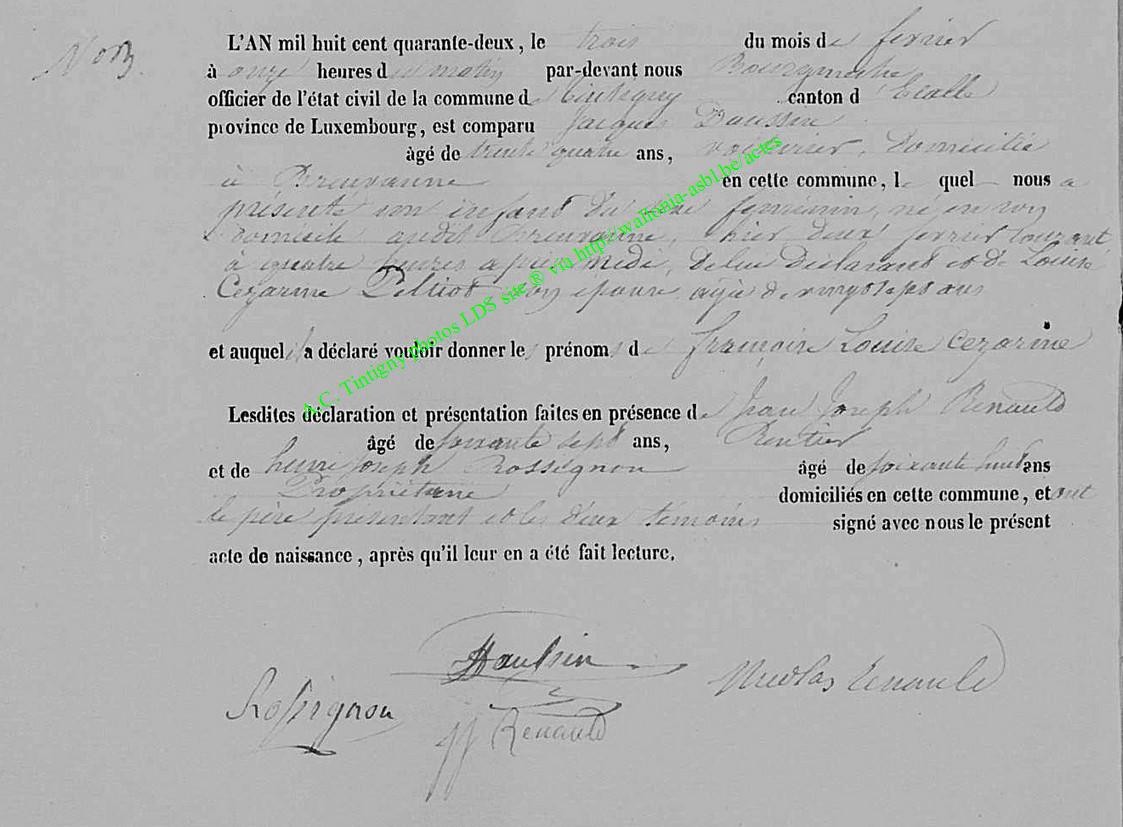 N° 13.
L'AN mil huit cent quarante-deux, le trois du mois de fevrier
à onze heures du matin par-devant nous Bourgmestre
officier de l'état civil de la commune de Tintigny canton d'Etalle
province de Luxembourg, est comparu Jacques
âgé de trente quatre ans, domicilié
à Breuvanne en cette commune, lequel nous a
présenté un enfant du sexe feminin, né en son
domicile audit Breuvanne, hier deux fevrier courant
à quatre heures après midi, de lui déclarant et de Louise
Cezarine son epouse agée de vingt sept ans
et auquel il a déclaré vouloir donner les prénoms de françoise Louise Cezarine
Lesdites déclaration et présentation faites en présence de Jean Joseph Renauld
âgé de soixante sept ans, Rentier
et de henri Joseph Rossignon âgé de soixante huit ans
Propriétaire domiciliés en cette commune, et ont
le père présentant et les deux témoins signé avec nous le présent
acte de naissance, après qu'il leur en a été fait lecture.
Rossignon
JJ Renauld
Nicolas Renauld
A.C. Tintigny photos LDS site ® via http://wallonia-asbl.be/actes